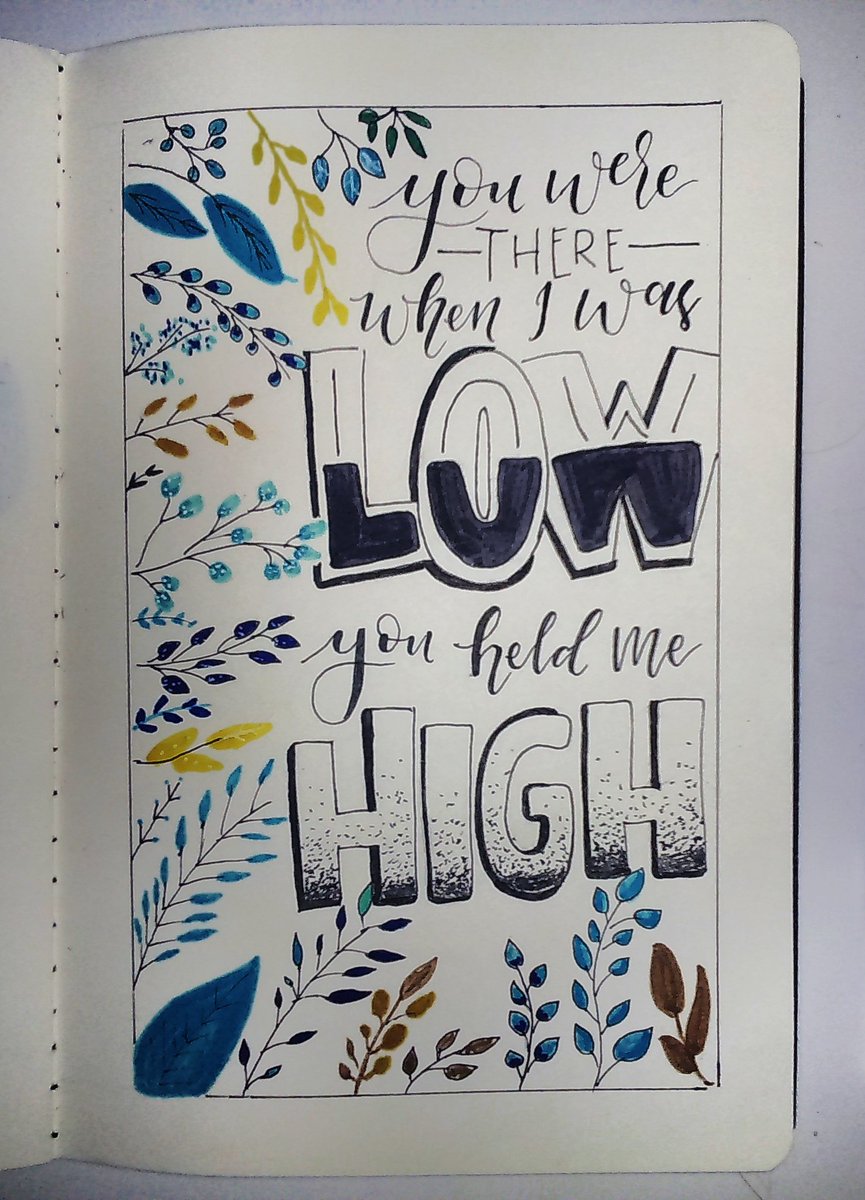 you were
—THERE—
when I was
LOW
you held me
HIGH